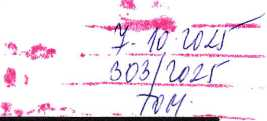 7.10.2025
303/2025